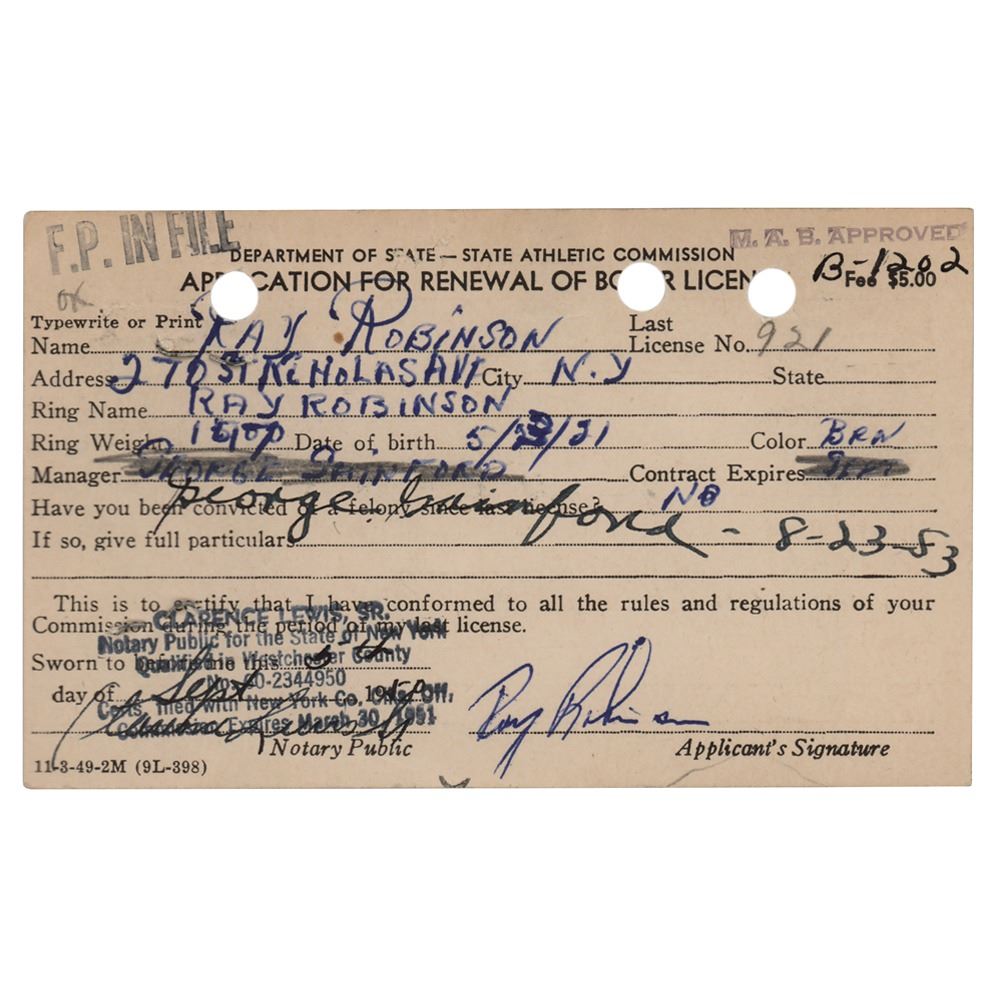 F.P. IN FILE
DEPARTMENT OF STATE — STATE ATHLETIC COMMISSION
M. A. B. APPROVED
APPLICATION FOR RENEWAL OF BOXER LICENSE
B-1202
Fee $5.00
OK
Typewrite or Print
Name RAY ROBINSON
Last License No. 921
Address 270 ST NICHOLAS AVE City N.Y State
Ring Name RAY ROBINSON
Ring Weight Date of birth 5/ /21 Color BRN
Manager GEORGE GAINFORD Contract Expires SEPT
George Gainford - 8-23-53
Have you been convicted of a felony since last license? NO
If so, give full particulars
This is to certify that I have conformed to all the rules and regulations of your
Commission during the period of my last license.
CLARENCE LEWIS, SR.
Notary Public for the State of New York
Qualified in Westchester County
No. 60-2344950
Certs. filed with New York Co. Clks. Off.
Commission Expires March 30, 1951
Sworn to before me this
day of Sept 1950
Clarence Lewis Sr
Notary Public
Ray Robinson
Applicant's Signature
11-3-49-2M (9L-398)